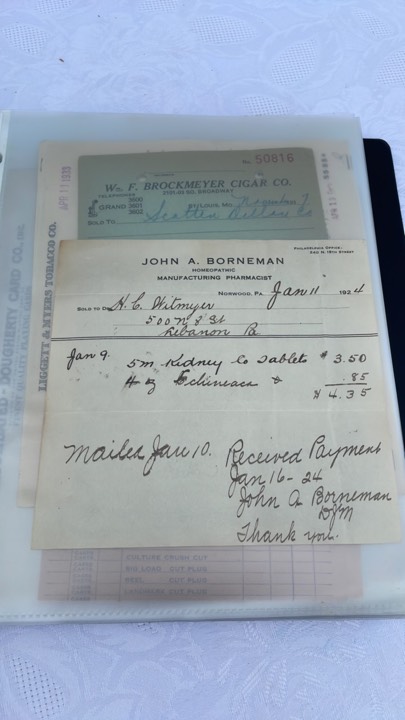 No. 50816
Wm. F. BROCKMEYER CIGAR CO.
SO. BROADWAY
TELEPHONES
GRAND
3600
3601
3602
ST. LOUIS, MO.
SOLD TO
APR 11 1933
LIGGETT & MYERS TOBACCO CO.
DOUGHERTY CARD CO., INC.
PHILADELPHIA OFFICE
JOHN A. BORNEMAN
HOMEOPATHIC
MANUFACTURING PHARMACIST
NORWOOD, PA. Jan 11 1924
SOLD TO Dr H. C. Witmyer
500 N 8 St
Lebanon Pa
Jan 9. 5m Kidney Co Tablets $ 3.50
Echinacea .85
$ 4.35
Mailed Jan 10.
Received Payment
Jan 16 - 24
John A Borneman
Thank you.
CULTURE CRUSH CUT
BIG LOAD CUT PLUG
CUT PLUG
CUT PLUG